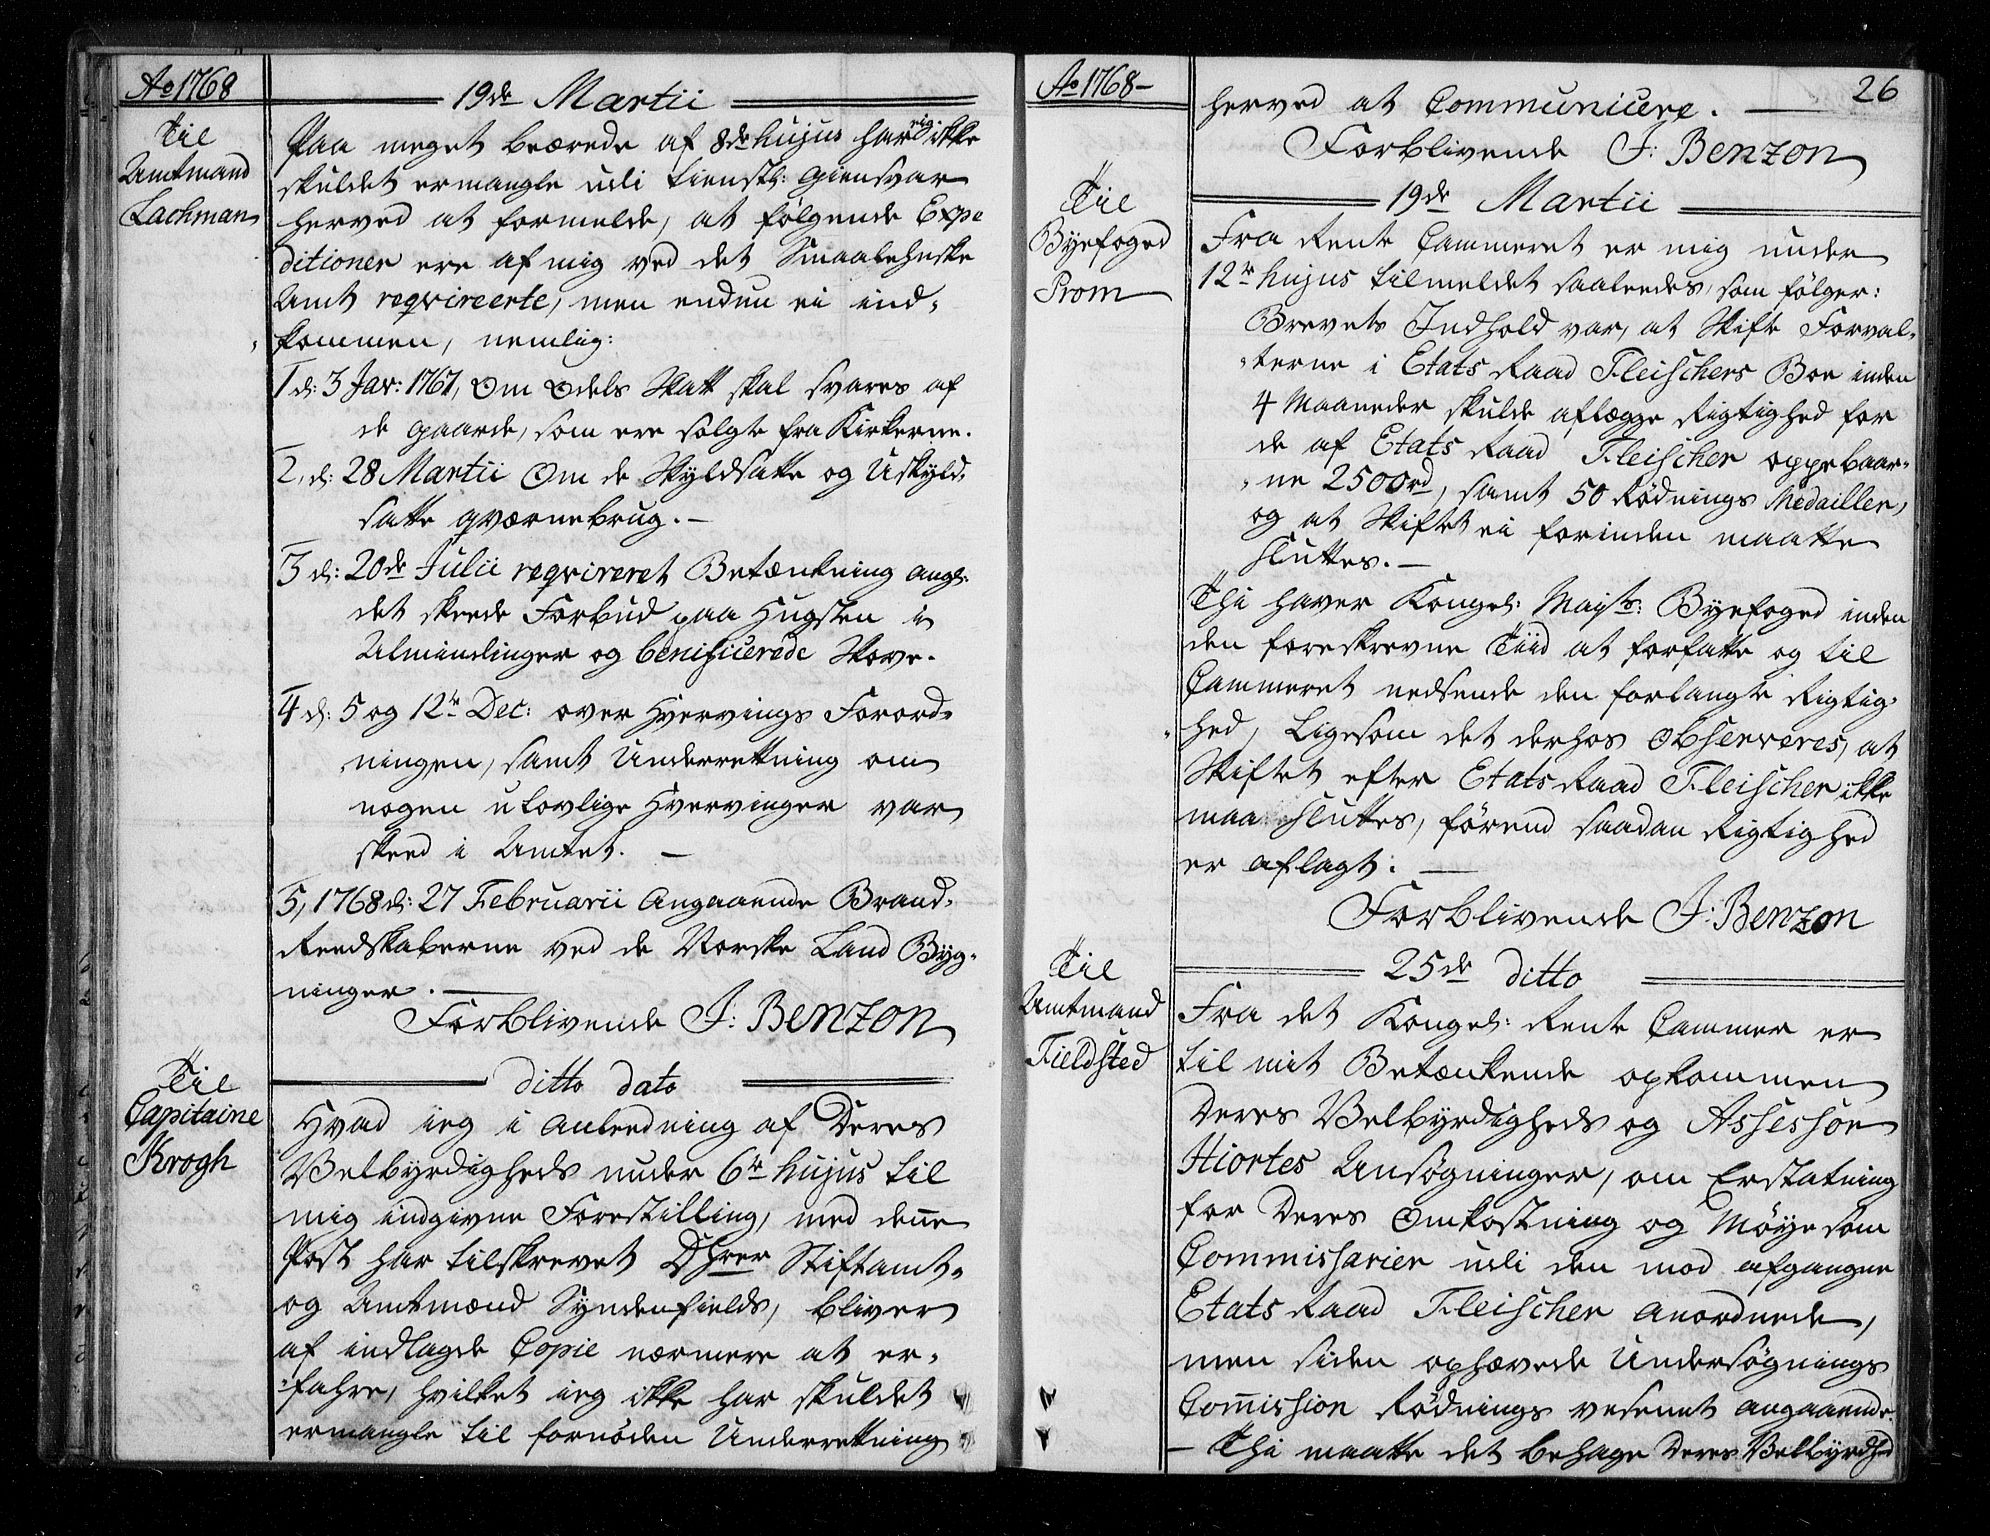 Ao 1768
19de Martii
Til
Amtmand
Lachman
Paa meget beærede af 8de hujus har ieg ikke
skuldet ermangle udi tienstl: giensvar
herved at formelde, at følgende Expe
ditioner ere af mig ved det Smaalehnske
Amt reqvireerte, men endnu ei ind-
kommen, nemlig:
1 d: 3 Jan: 1767, Om Odels Skatt skal svares af
de gaarde, som ere solgte fra Kirkerne.
2, d: 28 Martii Om de Skyldsatte og Uskyld-
satte qværnebrug. -
3 d: 20de Julii reqvireret Betænkning angl:
det skeede Forbud paa Hugsten i
Almindinger og benificerede Skove.
4 d: 5 og 12te Dec: over Hvervings Forord-
ningen, samt Underretning om
nogen ulovlige Hvervinger var
skeed i Amtet. -
5, 1768 d: 27 Februarii Angaaende Brand-
Reedskaberne ved de Norske Land Byg-
ninger. -
Forblivende J: Benzon
ditto dato
Til
Capitaine
Krogh
Hvad ieg i Anleedning af Deres
Velbyrdigheds under 6te hujus til
mig indgivne Forestilling, med denne
Post har tilskrevet DHrer Stiftamt-
og Amtmænd Syndenfields, bliver
af indlagde Copie nærmere at er-
fahre, hvilket ieg ikke har skuldet
ermangle til fornøden Underretning
Ao 1768 -
26
herved at Communicere. -
Forblivende J: Benzon
19de Martii
Til
Byefoged
Prom
Fra Rente Cammeret er mig under
12te hujus tilmeldet saaleedes, som følger:
Brevets Indhold var, at Skifte Forval-
terne i Etats Raad Fleischers Boe inden
4 Maaneder skulde aflægge Rigtighed for
de af Etats Raad Fleischer oppebaar-
ne 2500rd, samt 50 Rødnings Medailler,
og at Skiftet ei forinden maatte
sluttes. -
Thi haver Kongel: Mayts: Byefoged inden
den foreskrevne Tiid at forfatte og til
Cammeret nedsende den forlangte Rigtig-
hed, Ligesom det derhos observeres, at
Skiftet efter Etats Raad Fleischer ikke
maa sluttes, førend saadan Rigtighed
er aflagt. -
Forblivende J: Benzon
25de ditto
Til
Amtmand
Fieldsted
Fra det Kongel: Rente Cammer er
til mit Betænkende opkommen
Deres Velbyrdigheds og Assessor
Hiortes Ansøgninger, om Erstatning
for Deres Omkostning og Møye som
Commissarier udi den mod afgangne
Etats Raad Fleischer anordnede,
men siden ophævede Undersøgnings
Commission Rødnings vesenet angaaende.
- Thi maatte det behage Deres Velbyrdhed